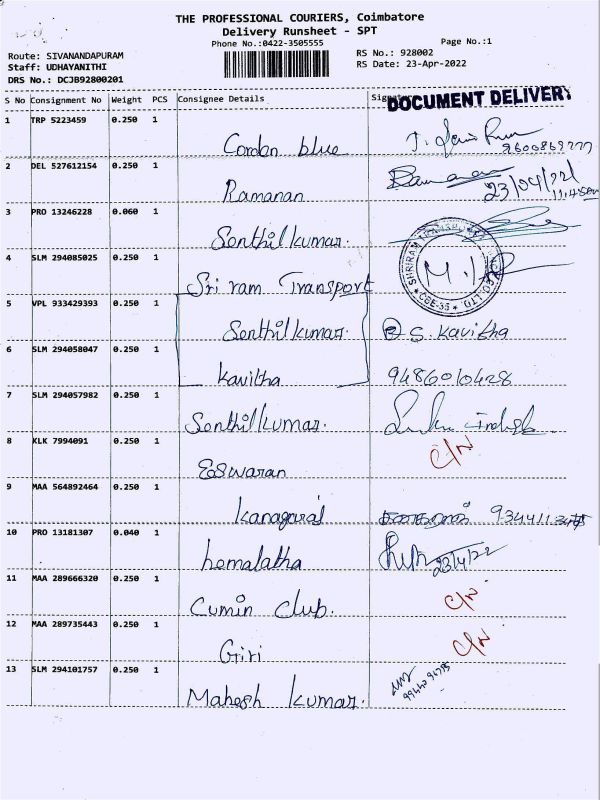 THE PROFESSIONAL COURIERS, Coimbatore
Delivery Runsheet - SPT
Phone No.:0422-3505555
Page No.:1
Route: SIVANANDAPURAM
Staff: UDHAYANITHI
DRS No.: DCJB92800201
RS No.: 928002
RS Date: 23-Apr-2022
S No Consignment No Weight PCS Consignee Details Signature
DOCUMENT DELIVERY
1 TRP 5223459 0.250 1
Cordon blue
2 DEL 527612154 0.250 1
Ramanan 23/04/22
3 PRO 13246228 0.060 1
Senthilkumar.
4 SLM 294085025 0.250 1
Sri ram Transport
SHRIRAM TRANSPORT
CBE-35
5 VPL 933429393 0.250 1
Senthilkumar. S. Kavitha
6 SLM 294058047 0.250 1
Kavitha 9486010428
7 SLM 294057982 0.250 1
Senthilkumar.
8 KLK 7994091 0.250 1
C/N
Eswaran
9 MAA 564892464 0.250 1
Kanagaraj கனகராஜ்
10 PRO 13181307 0.040 1
hemalatha 23/4/22
11 MAA 289666320 0.250 1
C/N
Cumin Club.
12 MAA 289735443 0.250 1
C/N
Giri
13 SLM 294101757 0.250 1
Mahesh Kumar.